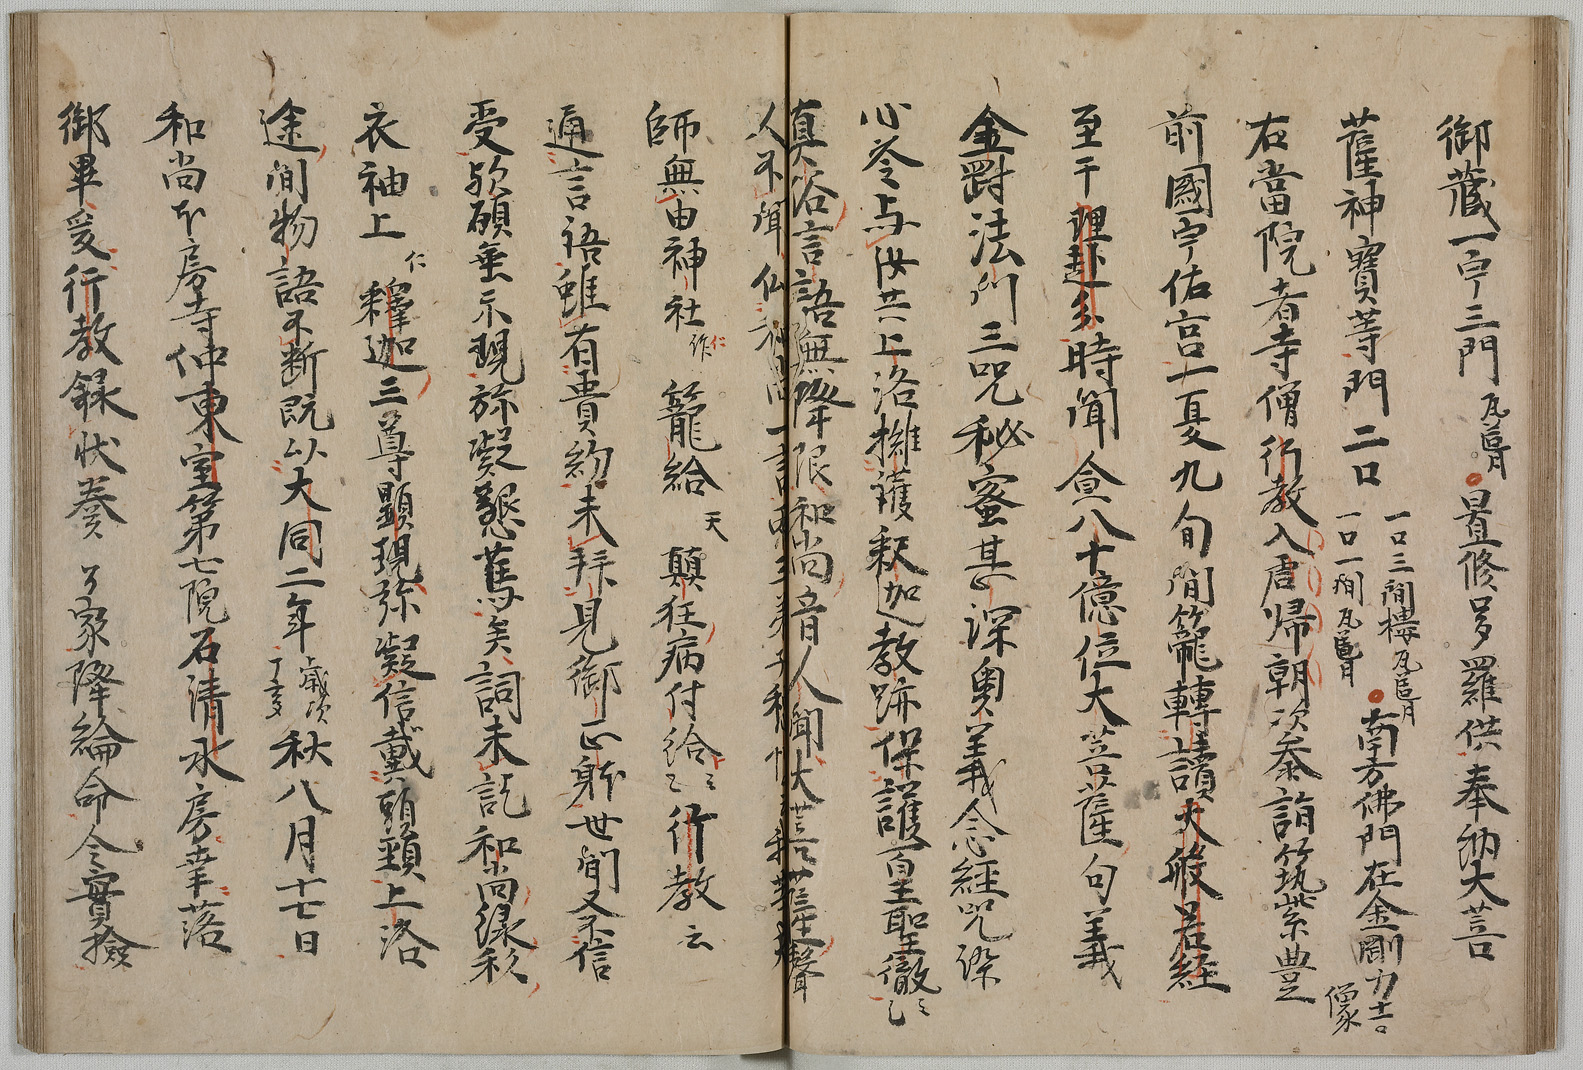 御蔵一宇三門 瓦葺 是修多羅供奉納大菩
薩神寶等門二口 一口三間樓瓦葺 一口一間瓦葺 南方佛門在金剛力士僧像
右當院者寺僧行教入唐歸朝次参詣筑紫豊
前國宇佐宮一夏九旬間籠轉讀大般若経
至于理趣分時聞食八十億位大菩薩句義
金爵法門三咒秘蜜甚深奥義念経咒染
心荅与汝共上洛擁護釈迦教跡保護百王聖徹
真俗言語無降限和尚音人聞大菩薩聲
人不聞
師無由神社 作仁 籠給 天 顛狂病付給 行教云
通言語雖有貴約未拜見御正躰世間又不信
受欤願垂示現弥凝懇篤矣詞未訖和尚緑衫
衣袖上 仁 釋迦三尊顯現弥凝信戴頭頸上洛
途間物語不断既以大同二年 歳次丁亥 秋八月十七日
和尚本房寺仲東室第七院石清水房幸落
御畢爰行教録状奏公家降綸命令實撿